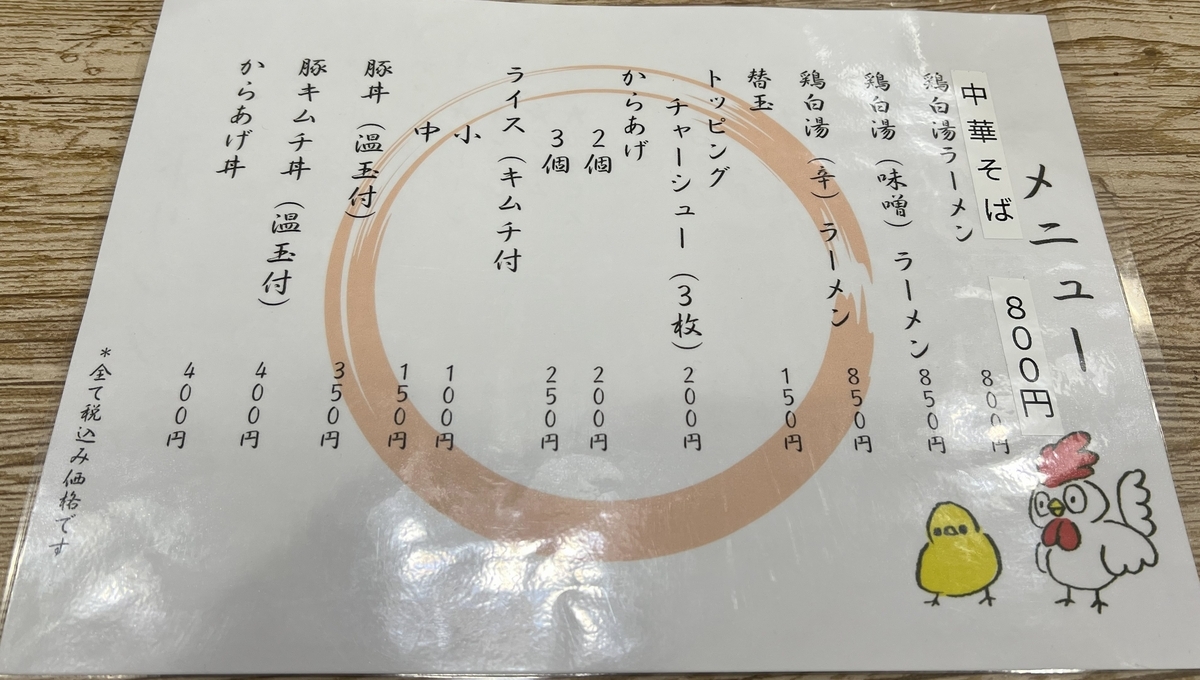 メニュー
中華そば 800円
鶏白湯ラーメン 800円
鶏白湯(味噌)ラーメン 850円
鶏白湯(辛)ラーメン 850円
替玉 150円
トッピング
チャーシュー(3枚) 200円
からあげ
2個 200円
3個 250円
ライス(キムチ付
小 100円
中 150円
豚丼(温玉付) 350円
豚キムチ丼(温玉付) 400円
からあげ丼 400円
*全て税込み価格です